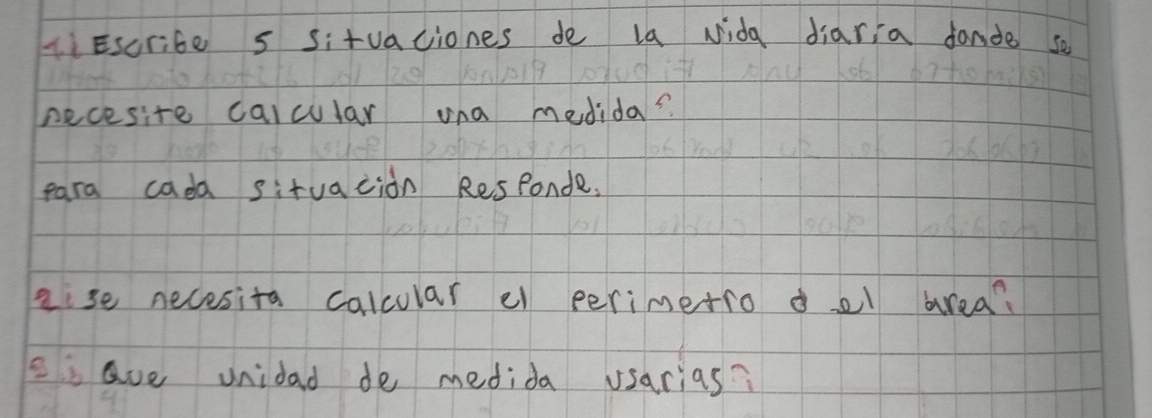 1¿ Escribe 5 situaciones de la vida diaria donde se
necesite calcular una medida?
para cada situación Responde.
2¿ se necesita calcular el perimetro o el area?
3¿ Que unidad de medida usarias?